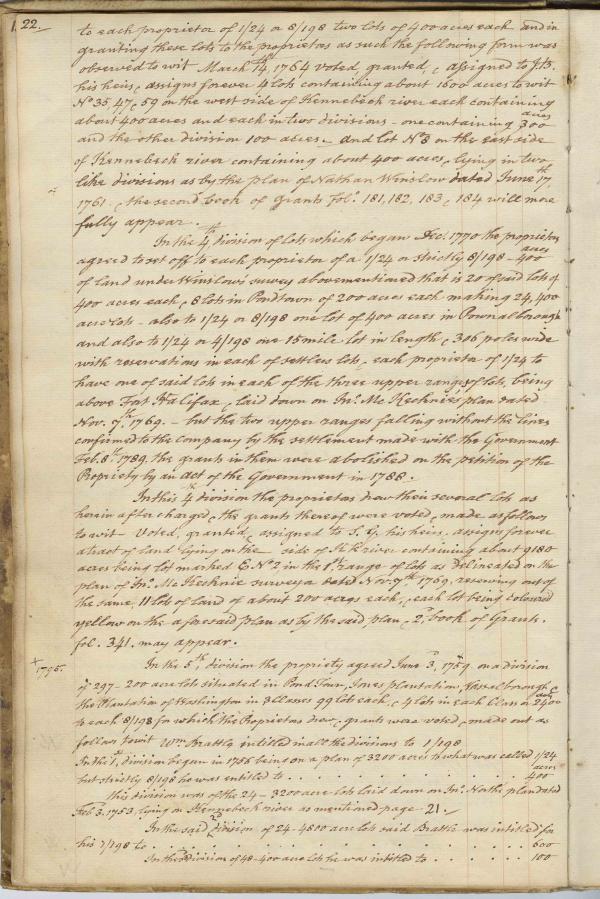 22.
to each proprietor of 1/24 or 8/198 two lots of 400 acres each and in
granting these lots to the proprietors as such the following form was
observed to wit March 14th, 1764 voted, granted, & assigned to
his heirs & assigns forever 4 lots containing about 1600 acres to wit
No 35, 47, & 59 on the west side of Kennebeck river each containing
about 400 acres and each in two divisions - one containing 300 acres
and the other division 100 acres, and lot No 8 on the east side
of Kennebeck river containing about 400 acres, lying in two
like divisions as by the plan of Nathan Winslow dated June 17th,
1761. & the second book of Grants Fol. 181, 182, 183, & 184 will more
fully appear.
In the 4th division of lots which began Dec. 1770 the proprietors
agreed to set off to each proprietor of a 1/24 or strictly 8/198 - 400 acres
of land under Winslow's survey abovementioned that is 20 of said lots of
400 acres each, & 8 lots in Pondtown of 200 acres each making 24, 400
acre lots - also to 1/24 or 8/198 one lot of 400 acres in Pownalborough
and also to 1/24 or 4/198 one 15 mile lot in length & 306 poles wide
with reservations in each of settlers lots, each proprietor of 1/24 to
have one of said lots in each of the three upper ranges of lots, being
above Fort Halifax, laid down on Jno. McKechnies plan dated
Nov. 7th 1769. - but the two upper ranges falling without the lines
confirmed to the company by the settlement made with the Government
Feb. 8th 1789. the grants in them were abolished on the petition of the
Propriety by an act of the Government in 1788.
In this 4th division the proprietors drew their several lots as
herein after charged, & the grants thereof were voted, & made as follows
to wit Voted, granted, & assigned to S. G. his heirs & assigns forever
a tract of land lying on the side of K. K river containing about 9180
acres being lot marked E No 2 in the 1st range of lots as delineated on the
plan of Jno. McKechnie surveyor dated Nov. 7th 1769, reserving out of
the same, 11 lots of land of about 200 acres each, each lot being coloured
yellow on the aforesaid plan as by the said plan & 2d book of Grants.
fol. 341. may appear.
+ 1795.
In the 5th division the propriety agreed June 3d, 1759. on a division
of 297 - 200 acre lots situated in Pond Town, Jones plantation, Vasselborough &
the Plantation of Washington in 3 Classes 99 lots each, & 4 lots in each Class or 2400 acres
to each 8/198 for which the Proprietors drew, grants were voted, & made out as
follows to wit Wm. Brattle intitled in all the divisions to 1/198
In the 1st division began in 1756 being on a plan of 3200 acres to what was called 1/24
but strictly 8/198 he was intitled to . . . . . . . . . . acres 400
this division was of the 24 - 3200 acre lots laid down on Jno. Norths plan dated
Feb. 3d 1753, lying on Kennebeck river as mentioned page 21.
In the said 2d division of 24 - 4800 acre lots said Brattle was intitled for
his 1/198 to . . . . . . . . . . 600
In the 3d division of 48 - 400 acre lots he was intitled to . . . . . . 100